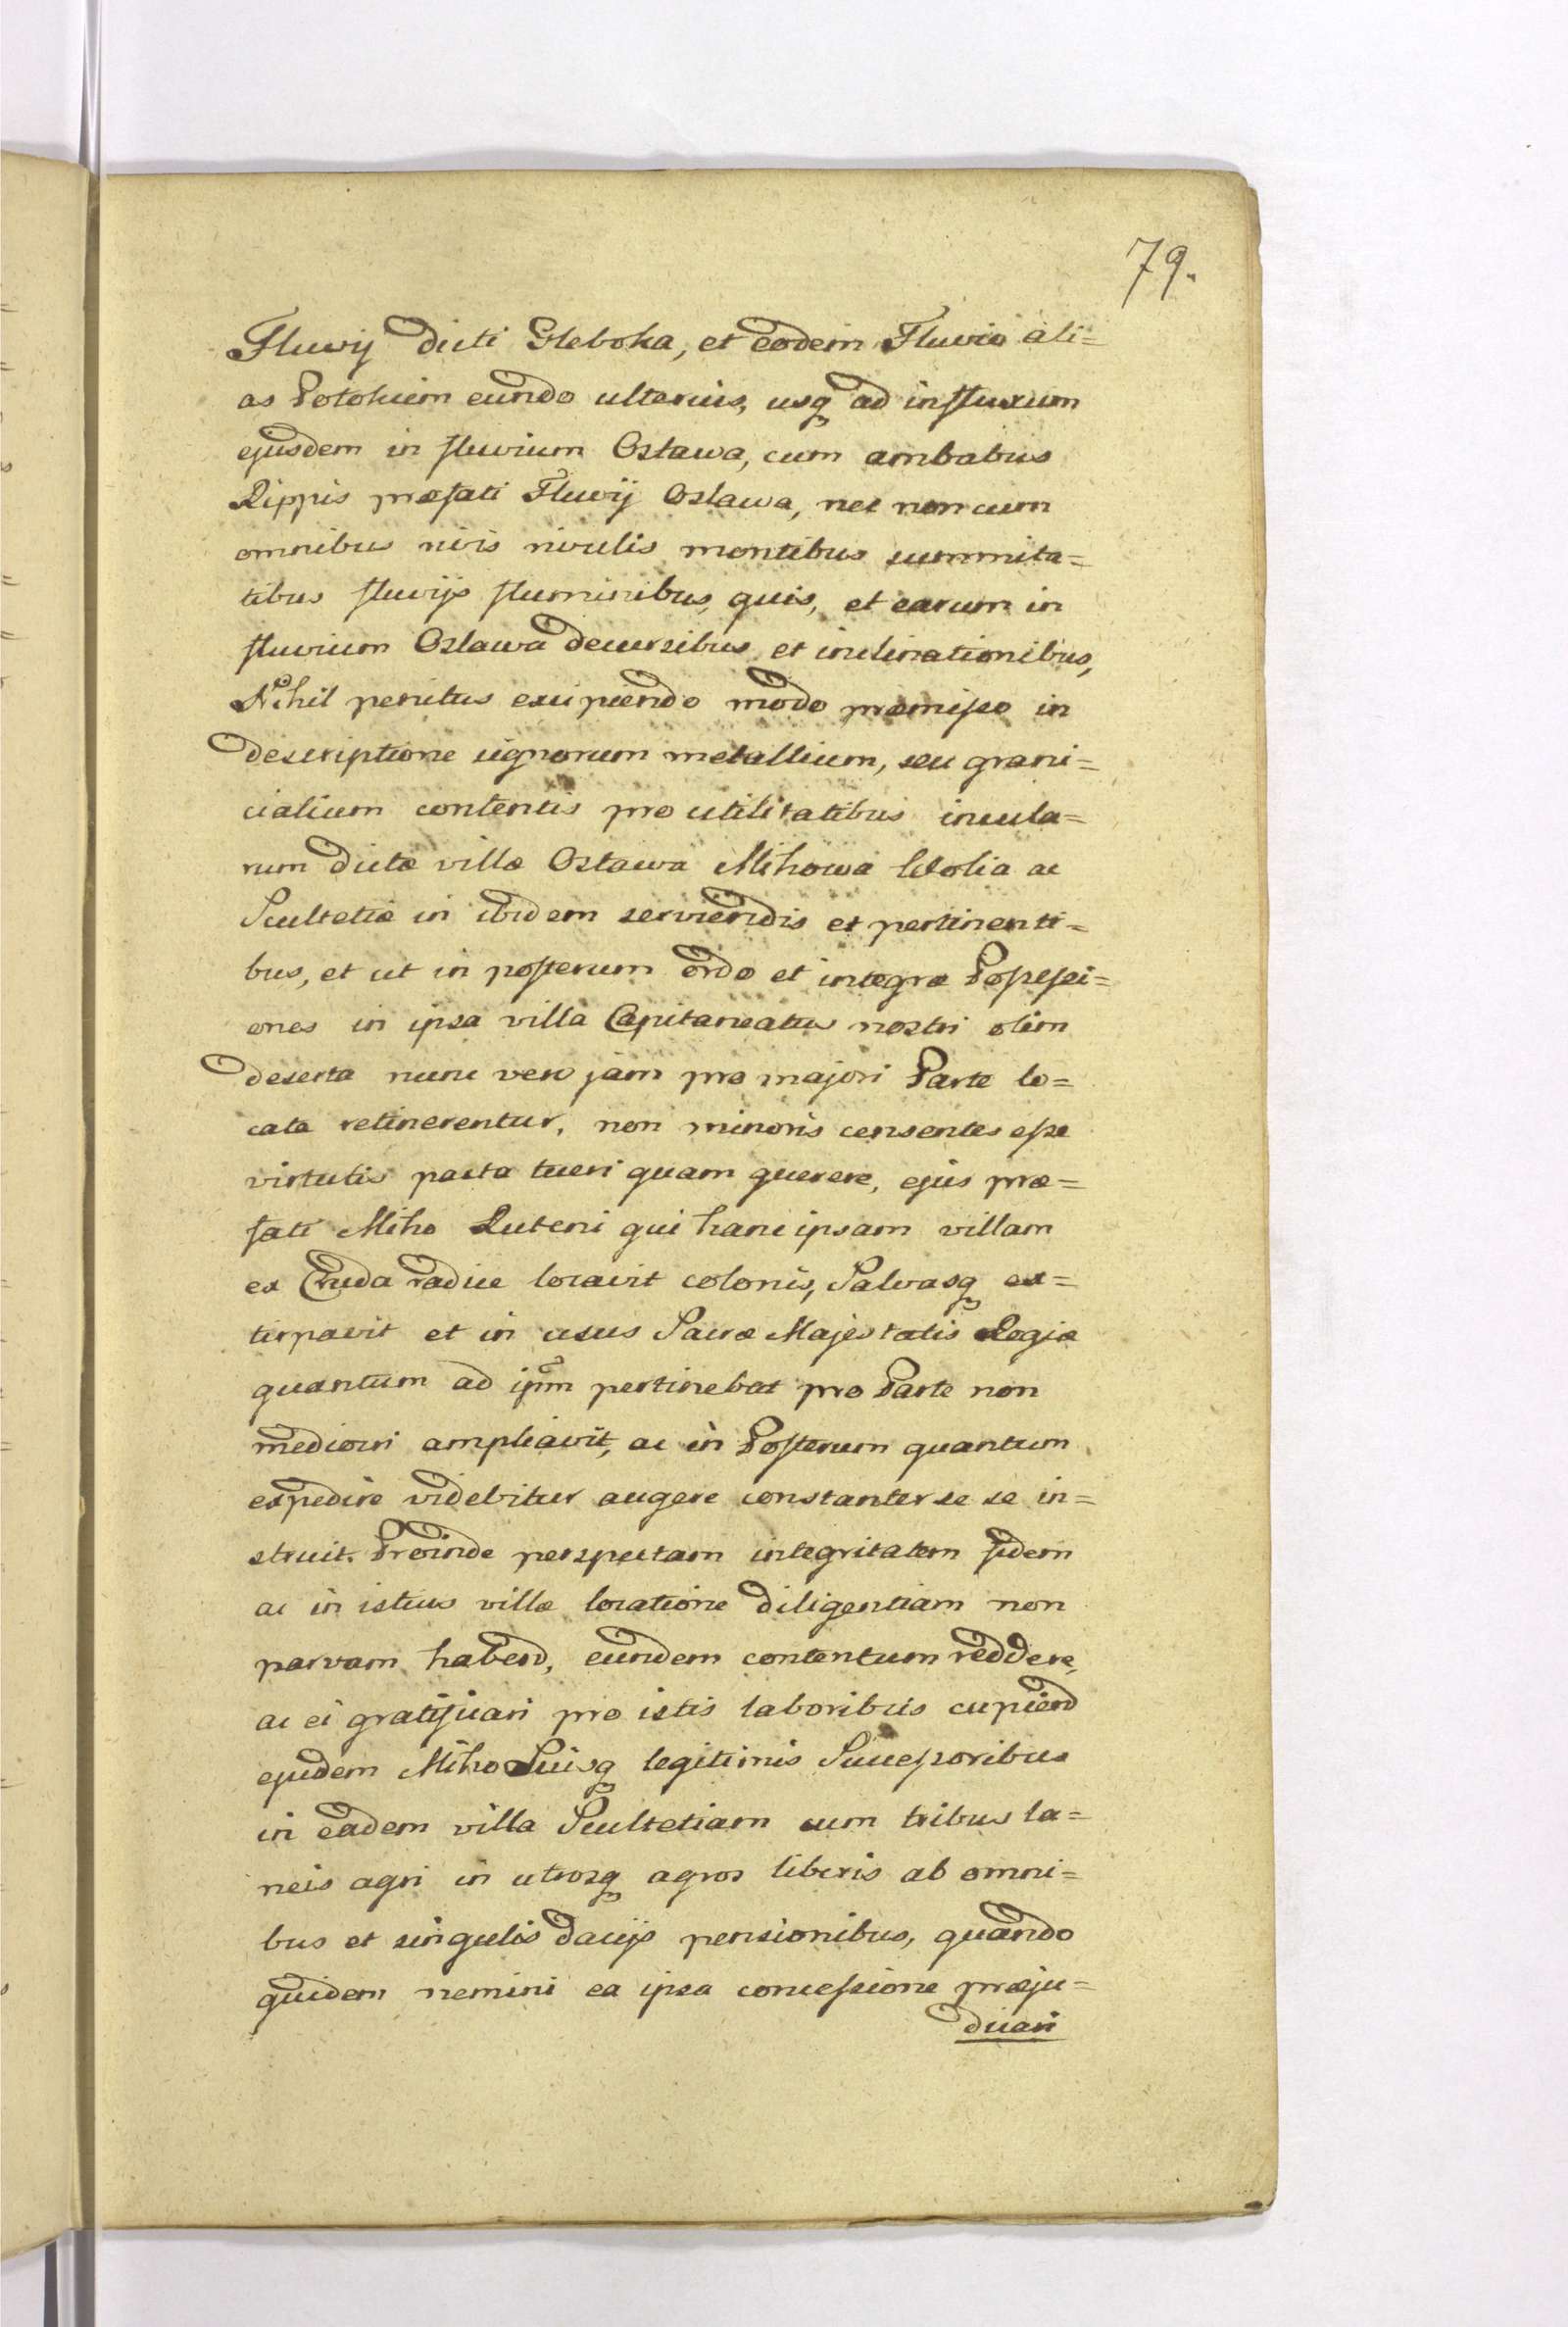 79.
Fluvij dicti Gleboka, et eodem Fluvio ali=
as Potokiem eundo ulterius, usq ad influxum
ejusdem in fluvium Osława, cum ambabus
Rippis præfati Fluvij Osława, nec non cum
omnibus rivis rivulis montibus summita=
tibus fluvijs fluminibus, quis, et earum in
fluvium Osława decursibus et inclinationibus,
Nihil penitus excipiendo modo præmisso in
descriptione signorum metallium, seu grani=
cialium contentis pro utilitatibus incula=
rum dictæ villæ Osława Mihowa Wolia ac
Scultetiæ in ibidem serviendis et pertinenti=
bus, et ut in posterum ordo et integræ Possessi=
ones in ipsa villa Capitaneatus nostri olim
deserta nunc vero jam pro majori Parte lo=
cata retinerentur, non minoris censentes esse
virtutis parta tueri quam querere, ejus præ=
fati Miho Ruteni qui hanc ipsam villam
ex Cruda radice locavit colonis, Salvasq ex=
tirpavit et in usus Sacræ Majestatis Regiæ
quantum ad ipm pertinebat pro Parte non
mediocri ampliavit, ac in Posterum quantum
expedire videbitur augere constanter se se in=
struit. Proinde perspectam integritatem fidem
ac in istius villæ locatione diligentiam non
parvam habend, eundem contentum reddere,
ac ei gratificari pro istis laboribus cupiend
ejudem Miho Suisq legitimis Successoribus
in eadem villa Scultetiam cum tribus la=
neis agri in utrosq agros liberis ab omni=
bus et singulis dacijs pensionibus, quando
quidem nemini ea ipsa concessione præju=
dicari